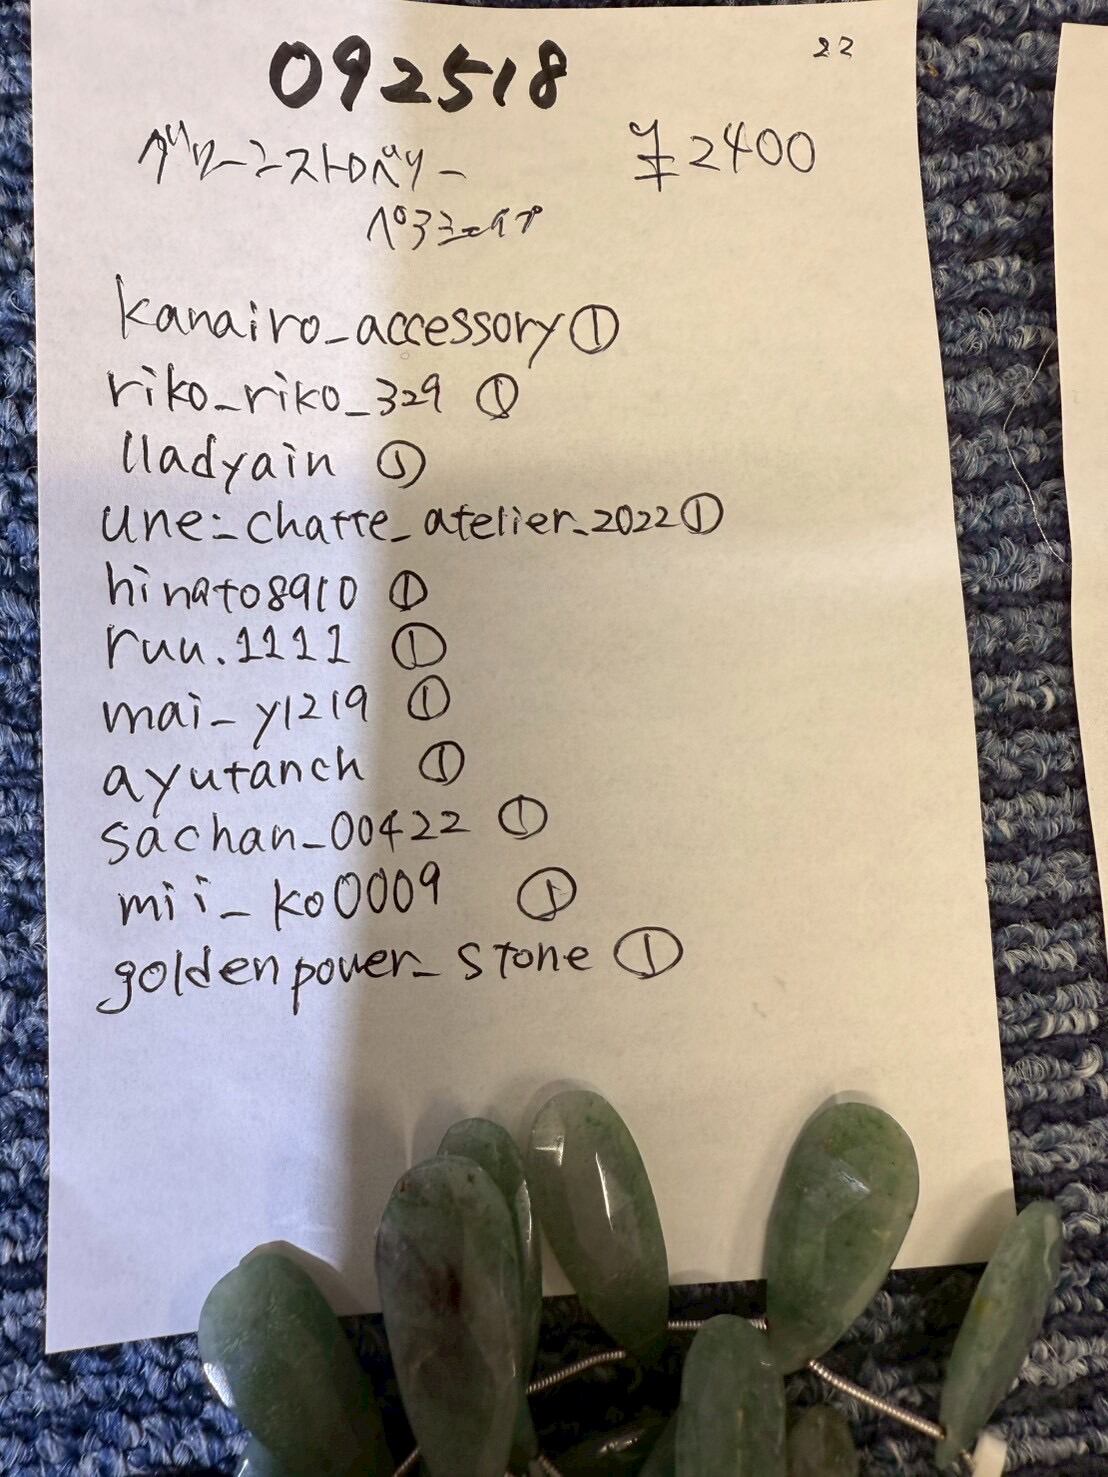 092518
22
グリーンストロベリー ¥2400
ペアシェイプ
kanairo_accessory①
riko_riko_329 ①
lladyain ①
une=_chatte_atelier_2022①
hinato8910 ①
ruu.1111 ①
mai_y1219 ①
ayutanch ①
sachan_00422 ①
mii_ko0009 ①
goldenpower_stone ①